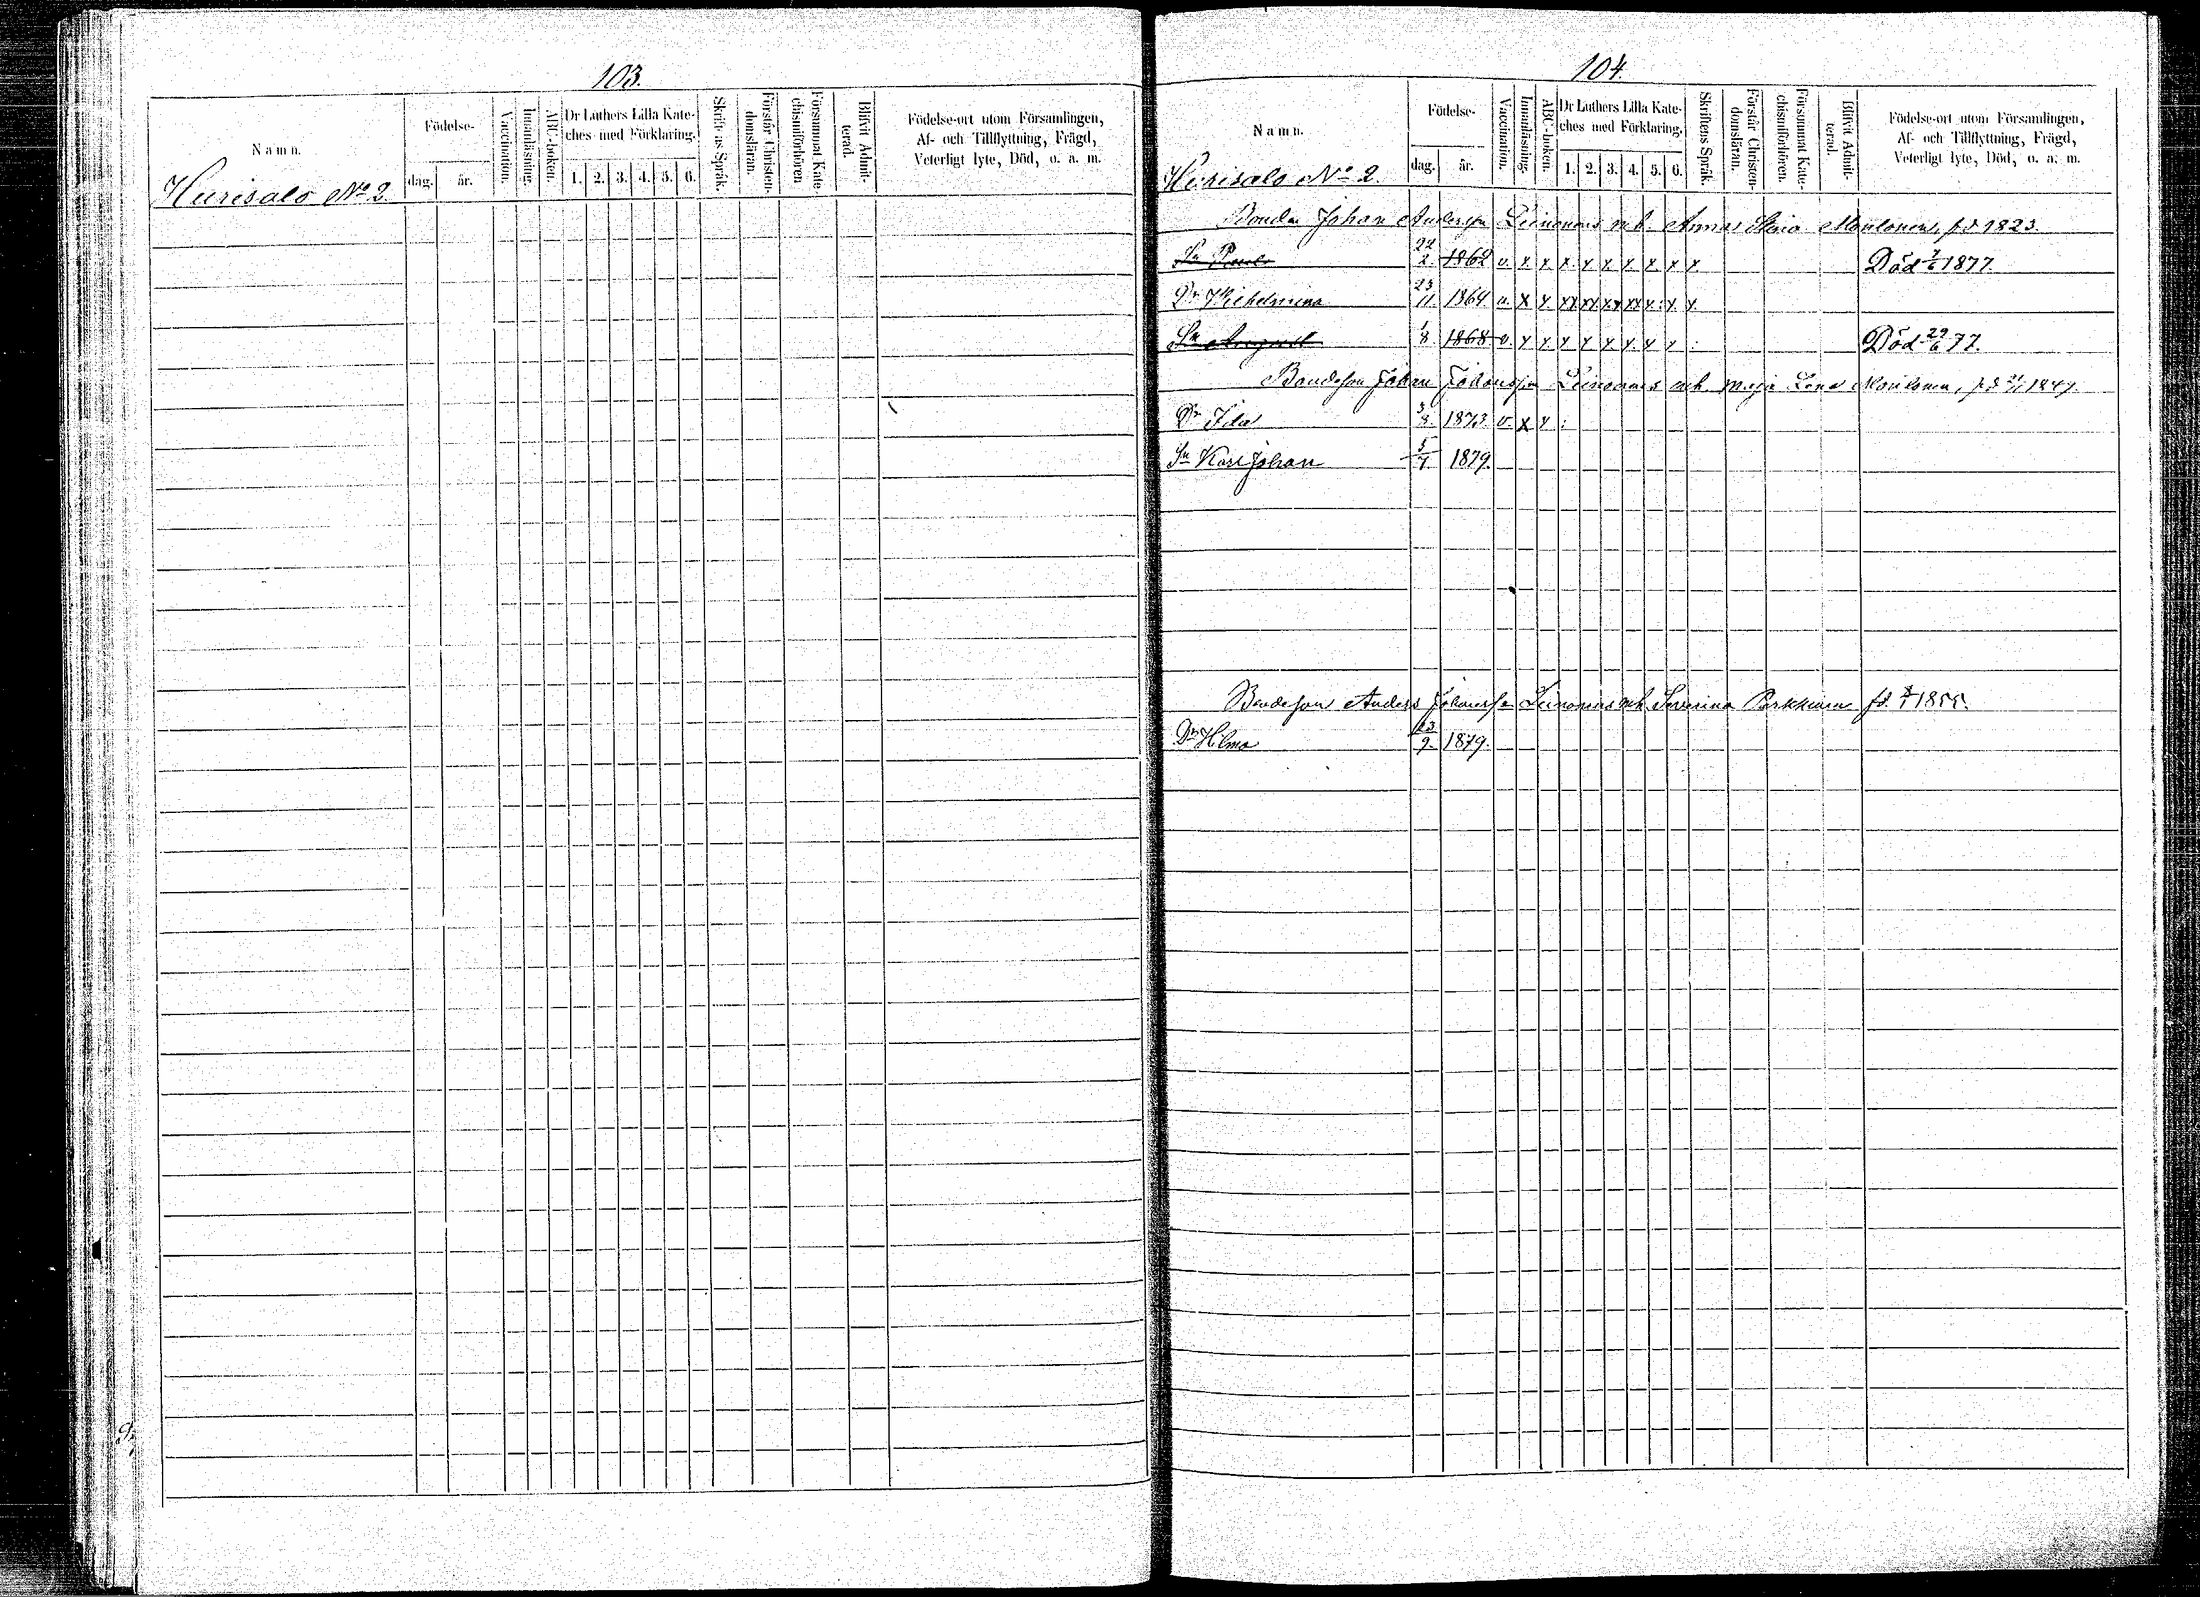 103.
Namn.
Födelse-
dag.
år.
Vaccination.
Innanläsning.
ABC-boken.
Dr Luthers Lilla Kate-
ches med Förklaring.
1. 2. 3. 4. 5. 6.
Skriftens Språk.
Förstår Christen-
domsläran.
Försummat Kate-
chismiförhören
Blifvit Admit-
terad.
Födelse-ort utom Församlingen,
Af- och Tillflyttning, Frägd,
Veterligt lyte, Död, o. a. m.
Hurisalo No 2.
104
Namn.
Födelse-
dag.
år.
Vaccination.
Innanläsning
ABC-boken.
Dr Luthers Lilla Kate-
ches med Förklaring.
1. 2. 3. 4. 5. 6.
Skriftens Språk.
Förstår Christen-
domsläran.
Försummat Kate-
chismiförhören.
Blifvit Admit-
terad.
Födelse-ort utom Församlingen,
Af- och Tillflyttning, Frägd,
Veterligt lyte, Död, o. a. m.
Hurisalo No 2.
Bonden Johan Andersson Leinonens m. h. Anna Stina Moilonen, fd 1823.
Sn Paul 22/2 1862 v. x x x x x x x x x Död 7/6 1877.
Dr Wilhelmina 23/11 1864 v. x x xx xx xx xx x x x
Sn August 1/8 1868 v. x x x x x x x x Död 29/6 77.
Bondeson Johan Johansson Leinonens m h. Maja Lena Moilonen, fd 1847.
Dr Ida 3/8 1873 v. x x
Sn Karl Johan 5/7 1879.
Bondeson Anders Johansson Leinonens m h. Severina Parkkinen fd. 1855.
Dr Hilma 23/9 1879.